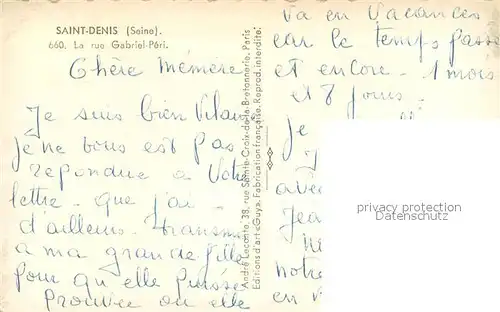 SAINT-DENIS (Seine).
660. La rue Gabriel-Péri.
Chère Mémère
Je suis bien
je ne vous est pas
repondue a Votre
lettre. que j'ai
d'ailleurs.
a ma grande fille
pour qu'elle puisse
ou elle
André Leconte, 38, rue Sainte-Croix-de-la-Bretonnerie, Paris
Editions d'art «Guy». Fabrication française. Reprod. interdite.
va en Vacances
car le temps passe
et encore. 1 mois
et 8 jours.
je
avec
Jea
notre
en
privacy protection
watermark